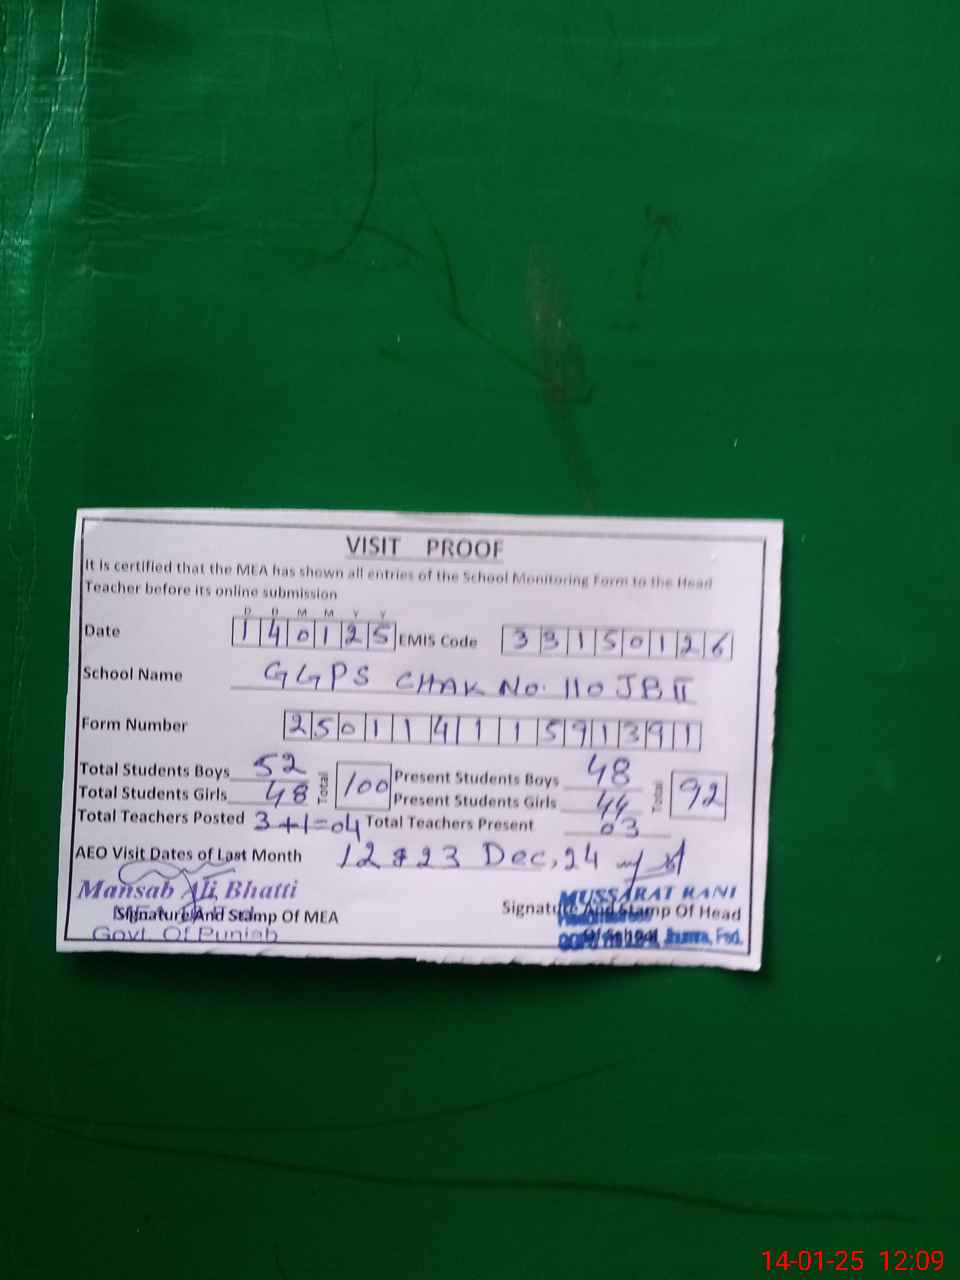 VISIT PROOF
It is certified that the MEA has shown all entries of the School Monitoring Form to the Head
Teacher before its online submission
D D M M Y Y
Date 140125 EMIS Code 33150126
School Name GGPS CHAK No. 110 JB II
Form Number 25011411591391
Total Students Boys 52 Total 100 Present Students Boys 48 Total 92
Total Students Girls 48 Present Students Girls 44
Total Teachers Posted 3+1=04 Total Teachers Present 03
AEO Visit Dates of Last Month 12 & 23 Dec, 24
Mansab Ali Bhatti MUSSARAT RANI
Signature And Stamp Of MEA Signature And Stamp Of Head
Govt. Of Punjab Of School Jhumra, Fsd.
14-01-25 12:09